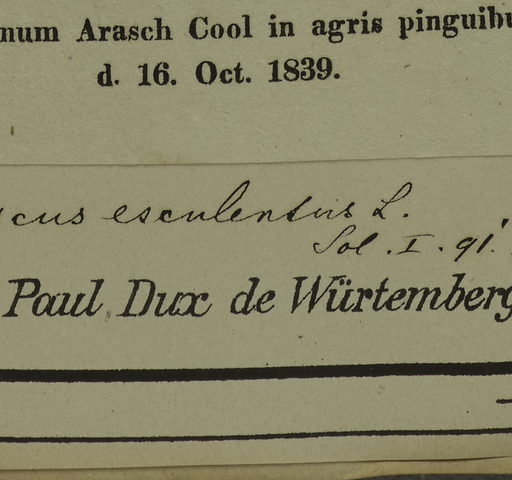 num Arasch Cool in agris pinguibu
d. 16. Oct. 1839.
cus esculentus L.
Sol. I. 91.
Paul Dux de Würtemberg